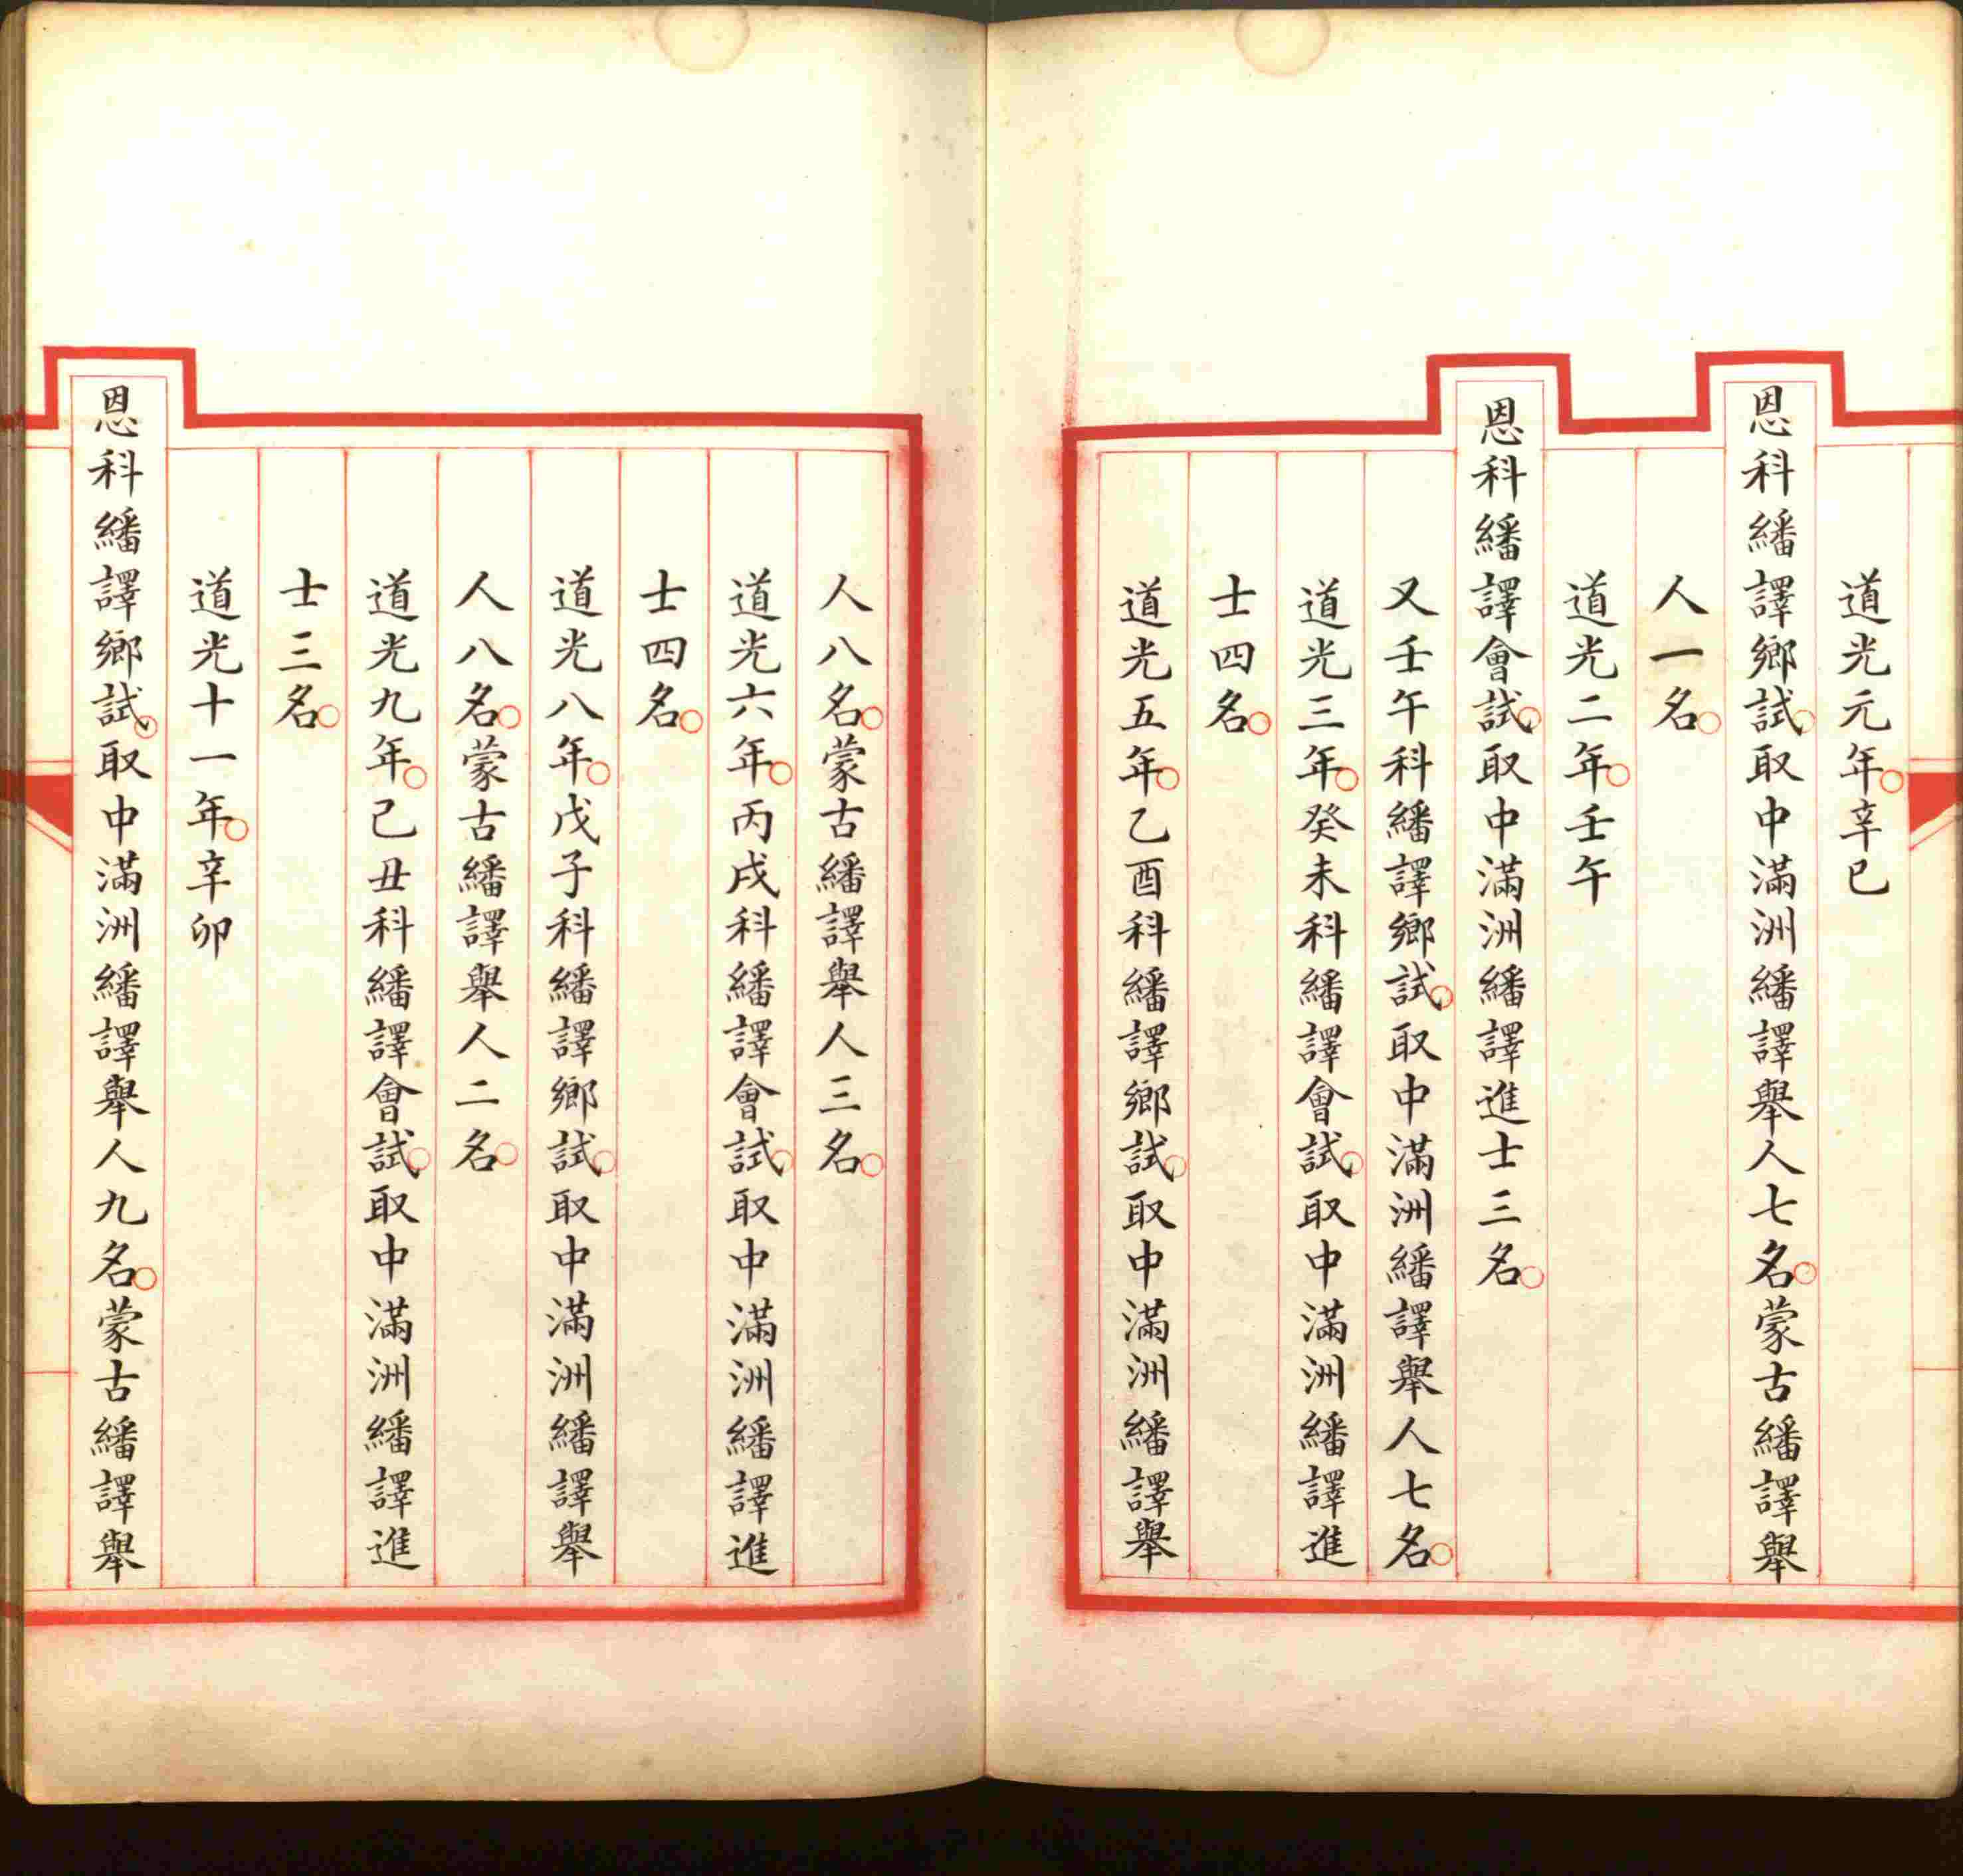 道光元年辛巳
恩科繙譯鄉試取中滿洲繙譯舉人七名蒙古繙譯舉
人一名
道光二年壬午
恩科繙譯會試取中滿洲繙譯進士三名
又壬午科繙譯鄉試取中滿洲繙譯舉人七名
道光三年癸未科繙譯會試取中滿洲繙譯進
士四名
道光五年乙酉科繙譯鄉試取中滿洲繙譯舉
人八名蒙古繙譯舉人三名
道光六年丙戌科繙譯會試取中滿洲繙譯進
士四名
道光八年戊子科繙譯鄉試取中滿洲繙譯舉
人八名蒙古繙譯舉人二名
道光九年己丑科繙譯會試取中滿洲繙譯進
士三名
道光十一年辛卯
恩科繙譯鄉試取中滿洲繙譯舉人九名蒙古繙譯舉